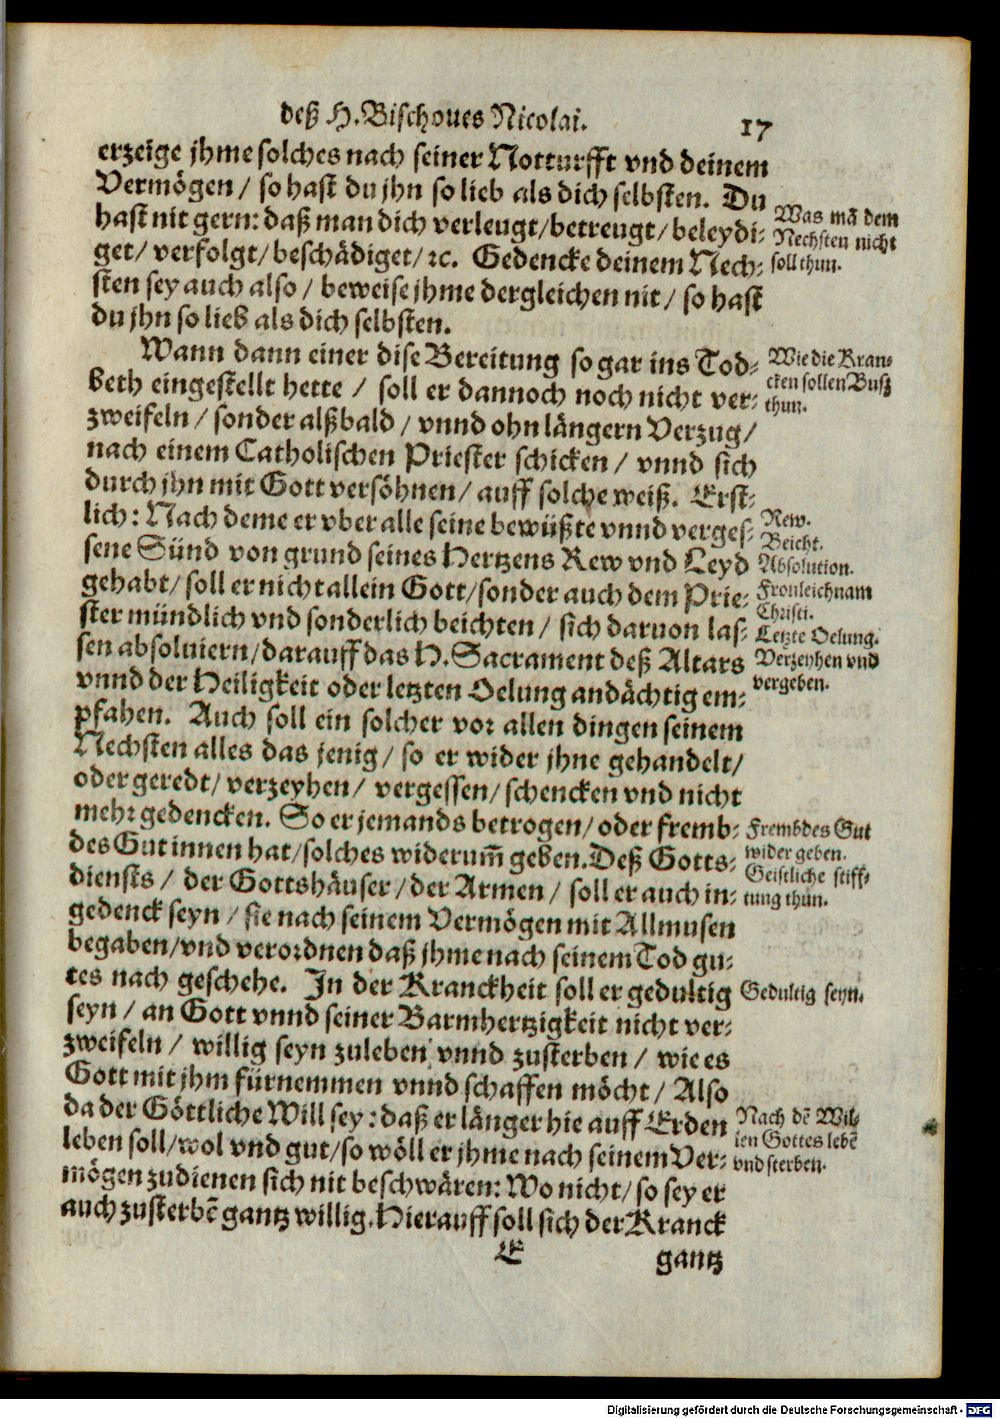 deß H. Bischoues Nicolai. 17
erzeige jhme solches nach seiner Notturfft vnd deinem
Vermögen / so hast du jhn so lieb als dich selbsten. Du
hast nit gern: daß man dich verleugt/betreugt/ beleydi-
get/ verfolgt/ beschädiget/ ꝛc. Gedencke deinem Nech-
sten sey auch also / beweise jhme dergleichen nit / so hast
du jhn so lieb als dich selbsten.
Was mā dem
Nechsten nicht
soll thun.
Wann dann einer dise Bereitung so gar ins Tod-
beth eingestellt hette / soll er dannoch noch nicht ver-
zweifeln / sonder alßbald / vnnd ohn längern Verzug /
nach einem Catholischen Priester schicken / vnnd sich
durch jhn mit Gott versöhnen / auff solche weiß. Erst-
lich: Nach deme er vber alle seine bewüßte vnnd verges-
sene Sünd von grund seines Hertzens Rew vnd Leyd
gehabt / soll er nicht allein Gott / sonder auch dem Prie-
ster mündlich vnd sonderlich beichten / sich daruon las-
sen absoluiern / darauff das H. Sacrament deß Altars
vnnd der Heiligkeit oder letzten Oelung andächtig em-
pfahen. Auch soll ein solcher vor allen dingen seinem
Nechsten alles das jenig / so er wider jhne gehandelt /
oder geredt / verzeyhen / vergessen / schencken vnd nicht
mehr gedencken. So er jemands betrogen / oder fremb-
des Gut innen hat / solches widerum̄ geben. Deß Gotts-
diensts / der Gottshäuser / der Armen / soll er auch in-
gedenck seyn / sie nach seinem Vermögen mit Allmusen
begaben / vnd verordnen daß jhme nach seinem Tod gu-
tes nach geschehe. In der Kranckheit soll er gedultig
seyn / an Gott vnnd seiner Barmhertzigkeit nicht ver-
zweifeln / willig seyn zuleben vnnd zusterben / wie es
Gott mit jhm fürnemmen vnnd schaffen möcht / Also
da der Göttliche Will sey: daß er länger hie auff Erden
leben soll / wol vnd gut / so wöll er jhme nach seinem Ver-
mögen zudienen sich nit beschwären: Wo nicht / so sey er
auch zusterbē gantz willig. Hierauff soll sich der Kranck
Wie die Kran-
cken sollen Buß
thun.
Rew.
Beicht.
Absolution.
Fronleichnam
Christi.
Letzte Oelung.
Verzeyhen vnd
vergeben.
Frembdes Gut
wider geben.
Geistliche stiff-
tung thun.
Gedultig seyn.
Nach dē Wil-
len Gottes lebē
vnd sterben.
E gantz
Digitalisierung gefördert durch die Deutsche Forschungsgemeinschaft - DFG